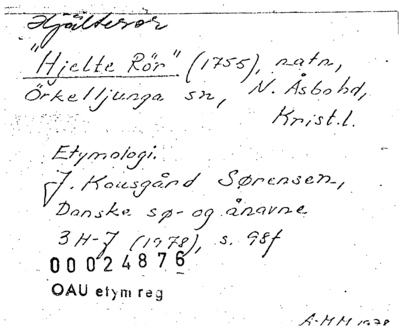 Hjälterör
"Hjelte Rör" (1755), natn,
Örkelljunga sn, N. Åsbohd,
Krist.l.
Etymologi.
J. Kousgård Sørensen,
Danske sø- og ånavne
3 H-J (1978), s. 98f
00024876
OAU etym reg
A-MM 1978